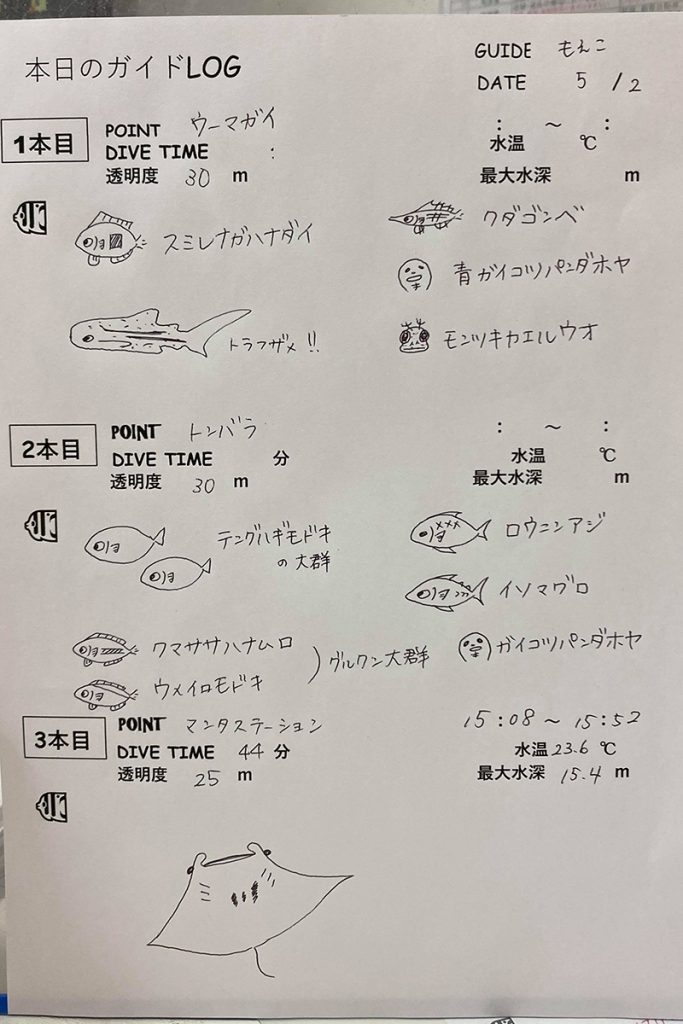 本日のガイドLOG
GUIDE もえこ
DATE 5 / 2
1本目
POINT ウーマガイ
DIVE TIME :
透明度 30 m
: ～ :
水温 ℃
最大水深 m
スミレナガハナダイ
クダゴンベ
青ガイコツパンダホヤ
トラフザメ!!
モンツキカエルウオ
2本目
POINT トンバラ
DIVE TIME 分
透明度 30 m
: ～ :
水温 ℃
最大水深 m
テングハギモドキ
の大群
ロウニンアジ
イソマグロ
クマササハナムロ
ウメイロモドキ
グルクン大群
ガイコツパンダホヤ
3本目
POINT マンタステーション
DIVE TIME 44 分
透明度 25 m
15:08 ～ 15:52
水温 23.6 ℃
最大水深 15.4 m